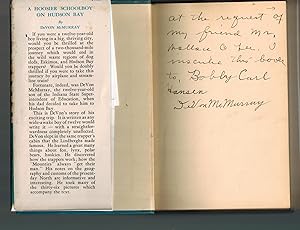 A HOOSIER SCHOOLBOY
ON HUDSON BAY
By
DeVON McMURRAY
If you were a twelve-year-old
boy living in a big, thriving city,
would you be thrilled at the
prospect of a two-thousand-mile
journey which would end in
the wild waste regions of the
sloth, Eskimos, and Hudson Bay
trappers? Would you be doubly
thrilled if you were to take this
journey by airplane and steam-
line train?
Fortunate, indeed, was DeVon
McMurray, the twelve-year-old
son of the Indiana State Super-
intendent of Education, when
his dad decided to take him to
Hudson Bay.
This is DeVon's story of his
exciting trip. It is written as any
wide-awake boy of twelve would
write it — with a straightfor-
wardness completely unaffected.
DeVon slept in the same trapper's
cabin that the Lindberghs made
famous. He learned a great many
things about fox, lynx, polar
bears, huskies. He discovered
how the trappers work, how the
"Mounties" always "get their
man." His notes on the geog-
raphy and customs of the present-
day North are informative and
interesting. He took many of
the thirty-six pictures which
accompany the text.
at the request of
my friend Mr.
Wallace O. Lee. I
inscribe this book
to, Bobby Carl
Hansen
DeVon McMurray